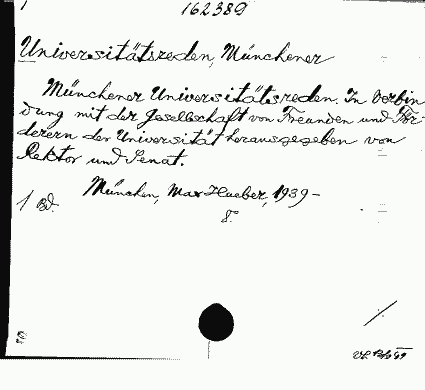 162389
Universitätsreden, Münchener
Münchener Universitätsreden. In Verbin
dung mit der Gesellschaft von Freunden und För-
derern der Universität herausgegeben von
Rektor und Senat.
München, Max Hueber, 1939-
1 Bd.
8°.